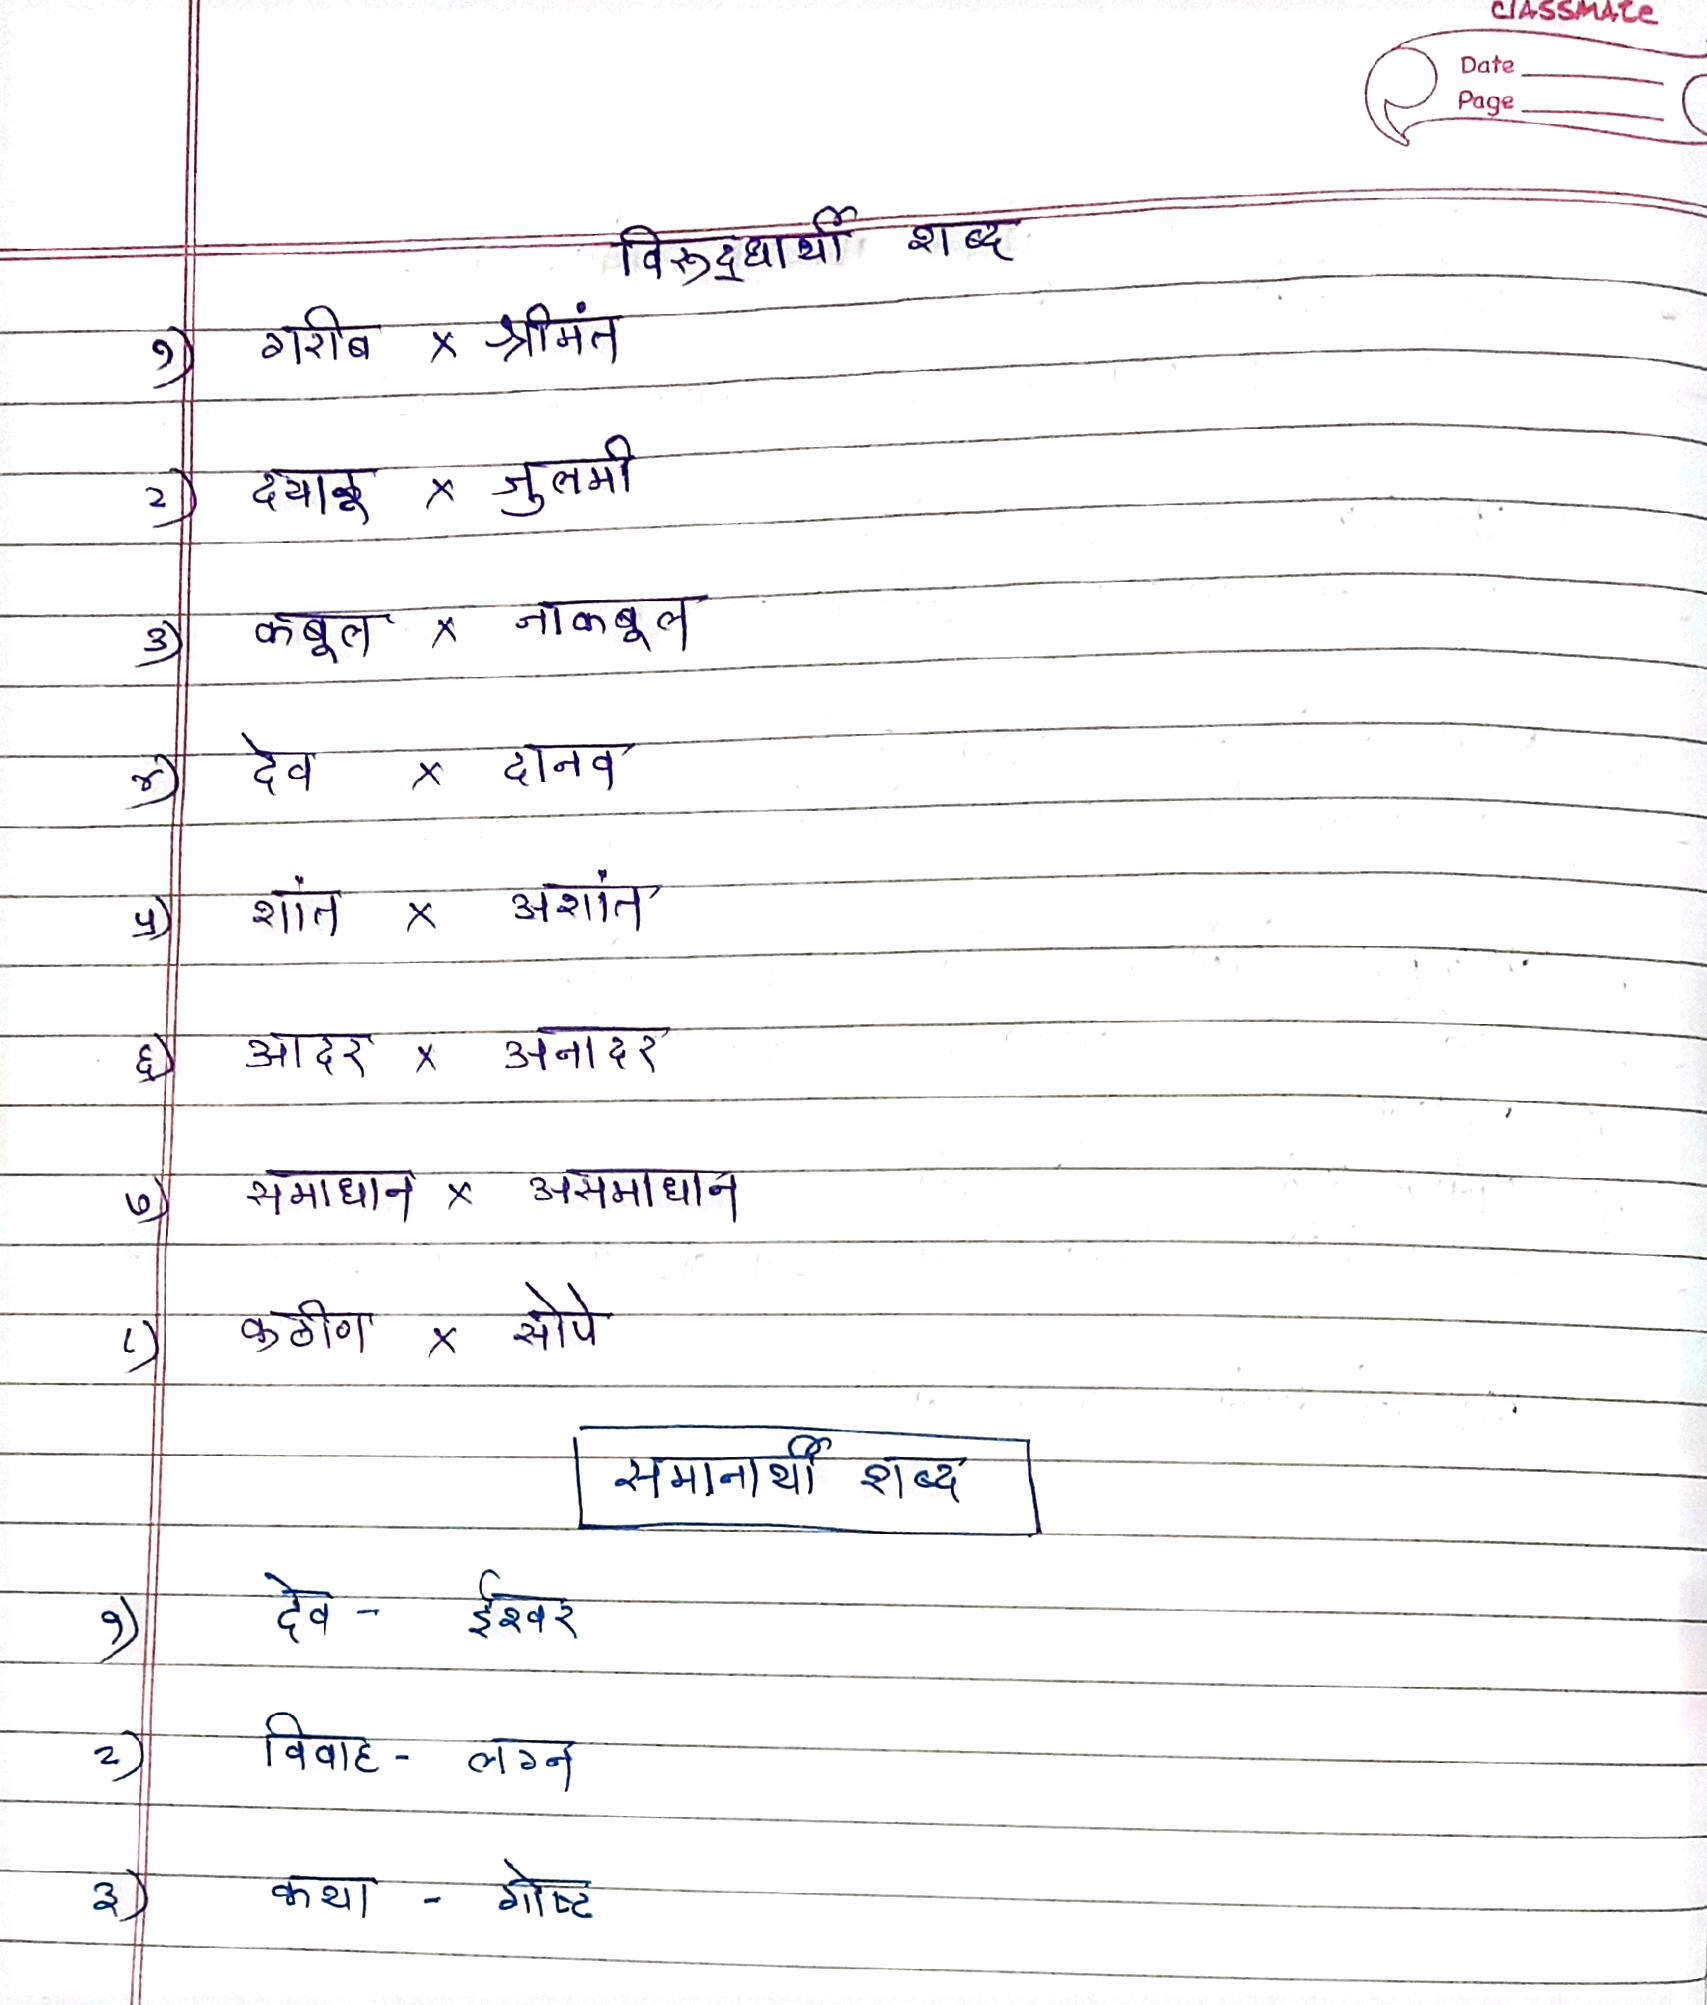 CLASSMATE
Date
Page
विरूद्धार्थी शब्द
१) गरीब × श्रीमंत
२) दयाळू × जुलमी
३) कबूल × नाकबूल
४) देव × दानव
५) शांत × अशांत
६) आदर × अनादर
७) समाधान × असमाधान
८) कठीण × सोपे
समानार्थी शब्द
१) देव - ईश्वर
२) विवाह - लग्न
३) कथा - गोष्ट